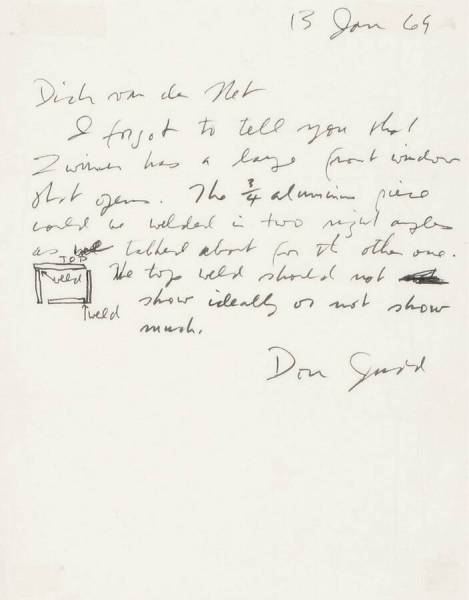 13 Jan 69
Dick van der Net
I forgot to tell you that
Zwirner has a large front window
that opens. The 3/4 aluminum piece
could be welded in two right angles
as we talked about for the other one.
TOP
weld
weld
The top weld should not
show ideally or not show
much.
Don Judd